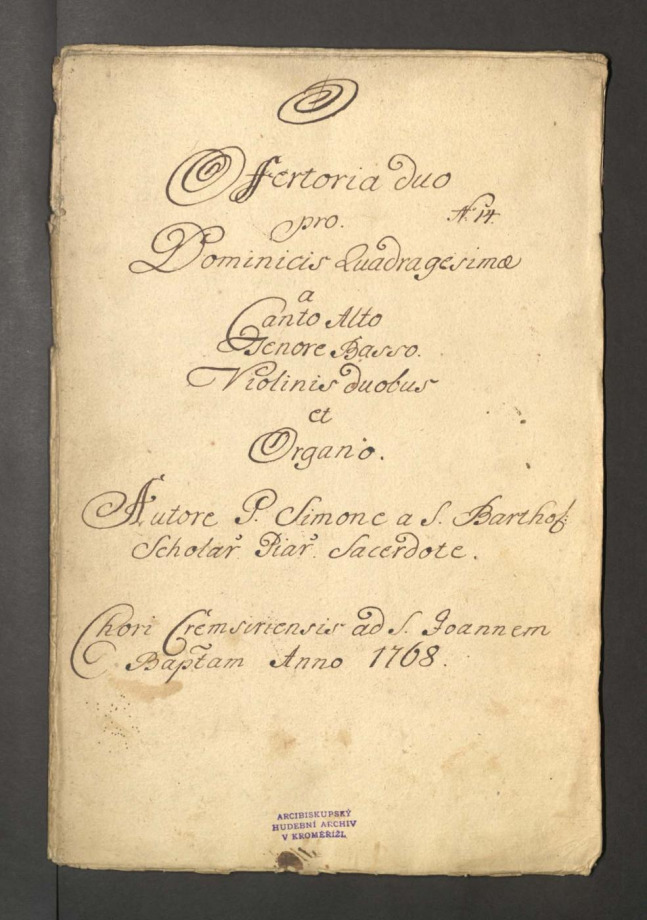 Offertoria duo
pro.
N: 14.
Dominicis Quadragesimæ
a
Canto Alto
Tenore Basso.
Violinis duobus
et
Organo.
Autore P. Simone a S. Barthol:
Scholar. Piar. Sacerdote.
Chori Cremsiriensis ad S. Joannem
Baptam Anno 1768.
ARCIBISKUPSKÝ
HUDEBNÍ ARCHIV
V KROMĚŘÍŽI.